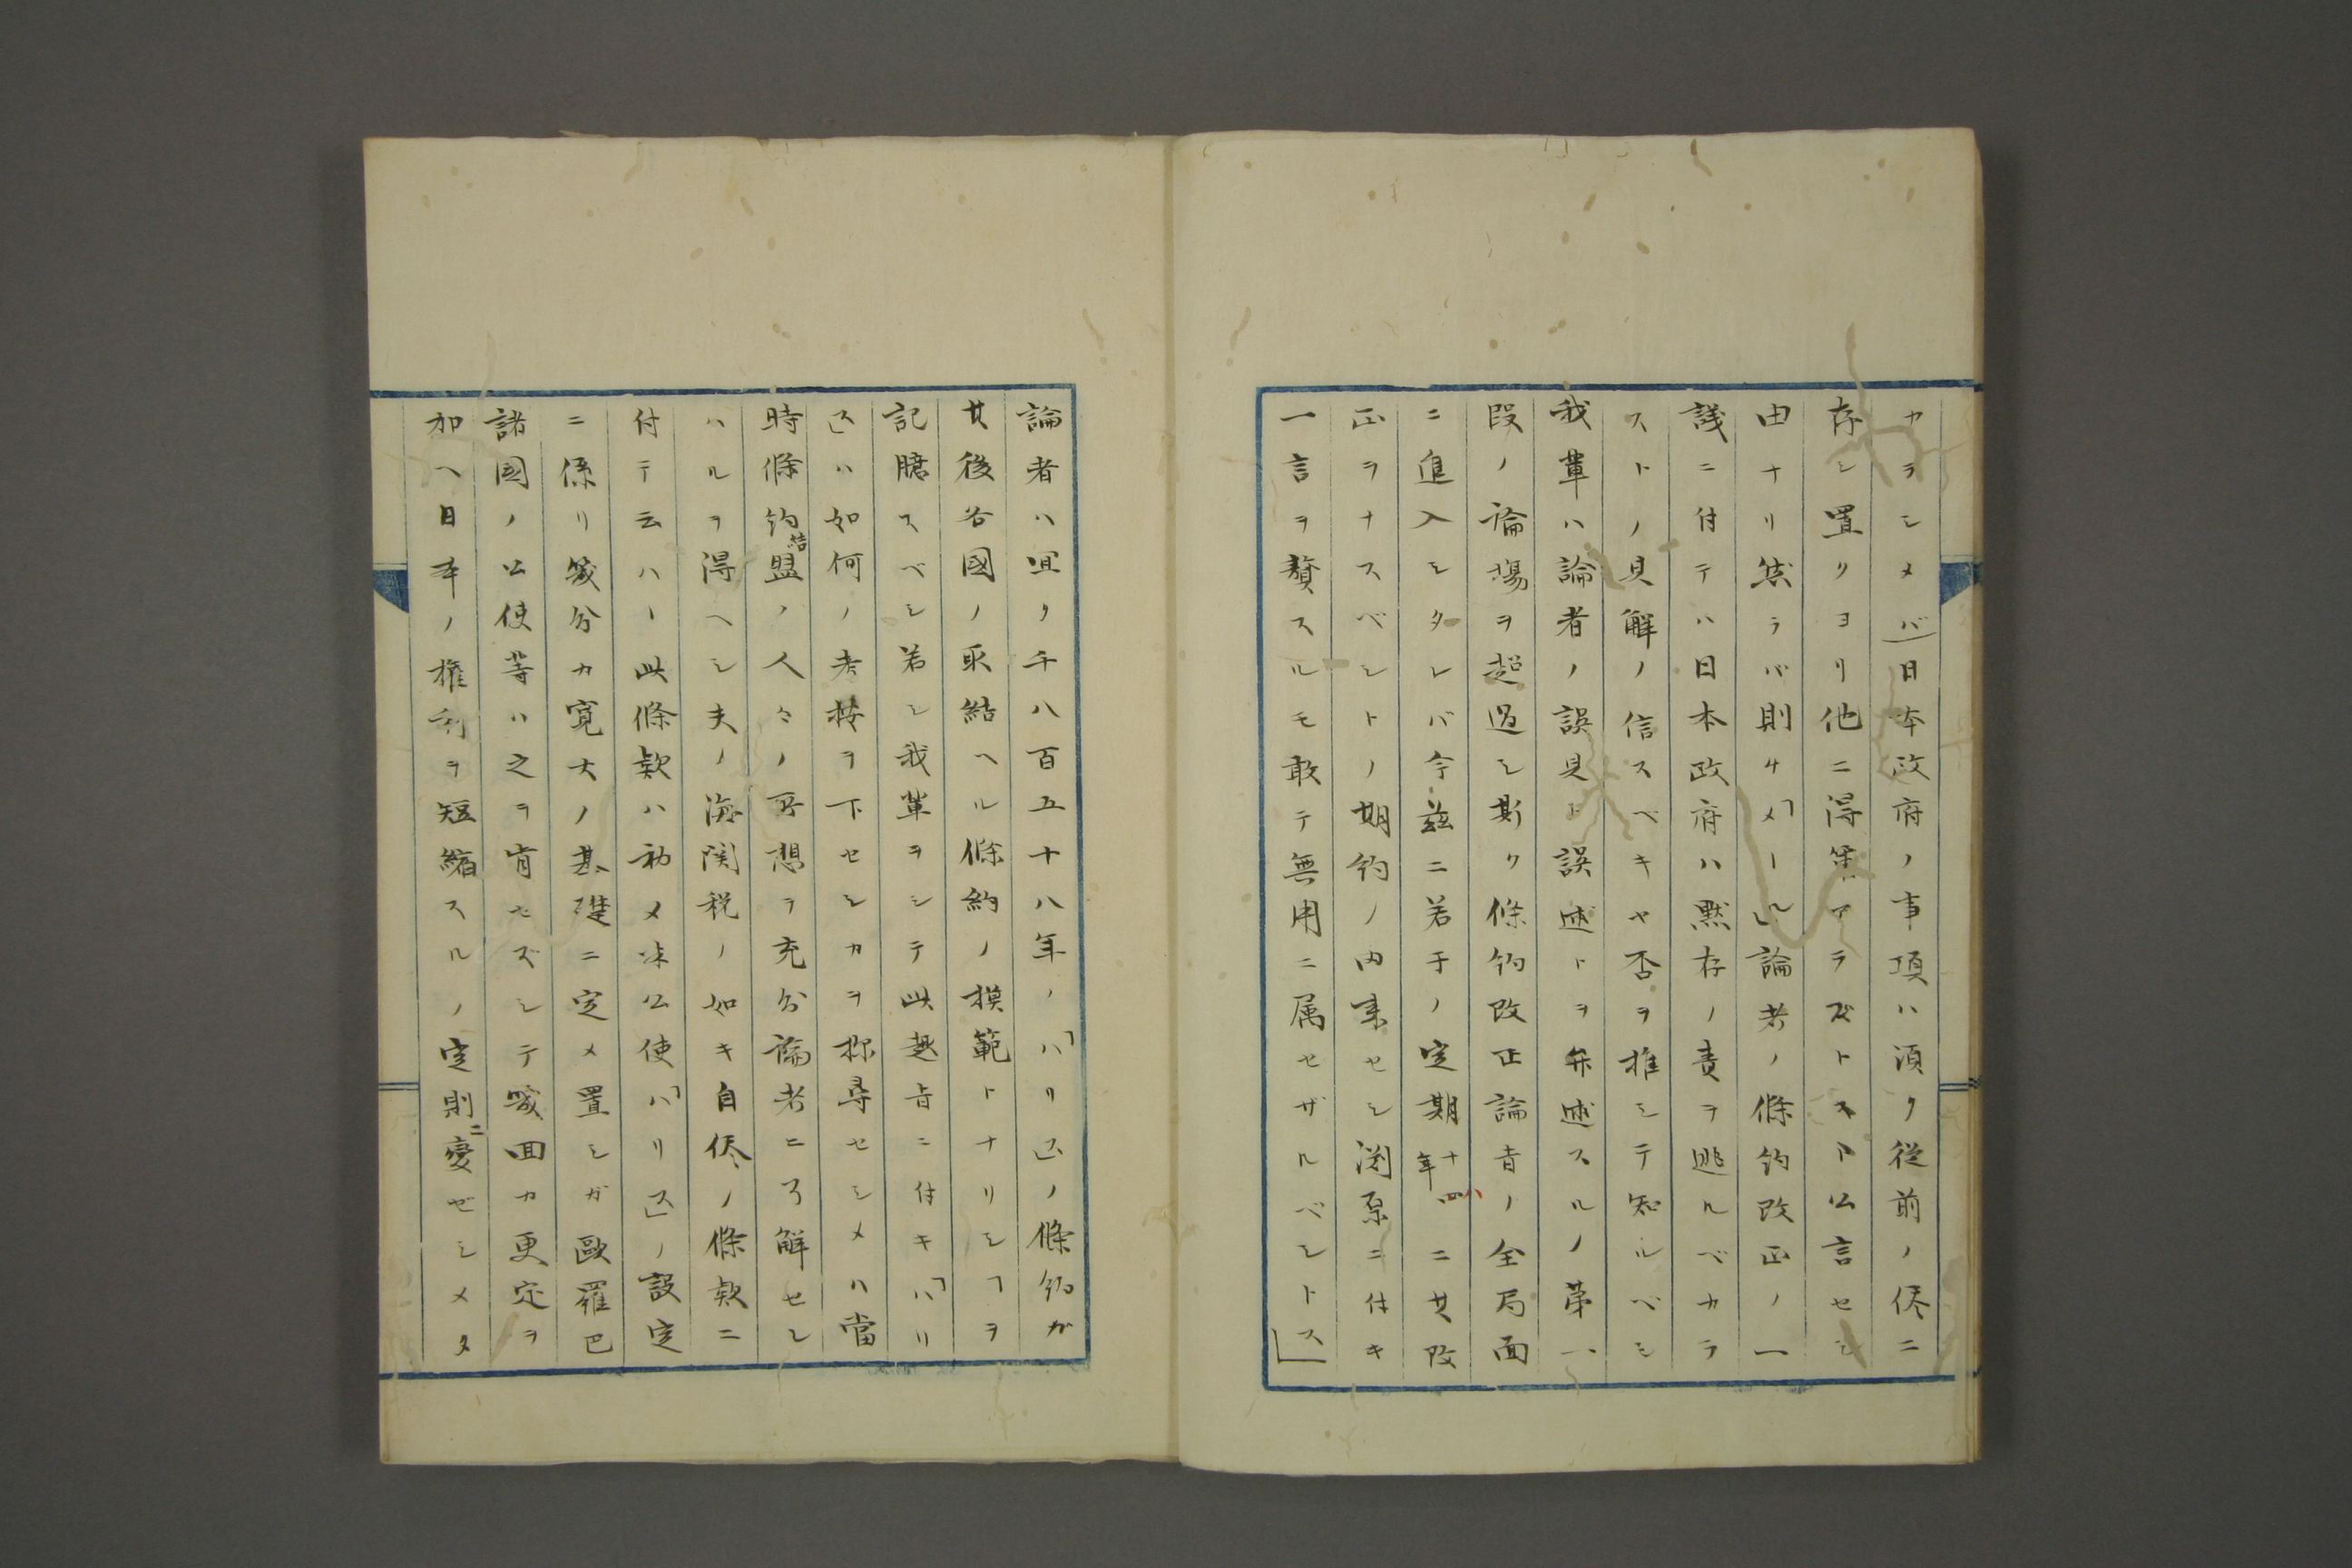 カラシメバ日本政府ノ事項ハ須ク従前ノ侭ニ
存シ置クヨリ他ニ得策アラズトスト公言セシ
由ナリ然ラバ則チ「メール」論者ノ條約改正ノ一
議ニ付テハ日本政府ハ黙存ノ責ヲ逃ルベカラ
ストノ見解ノ信スベキヤ否ヲ推シテ知ルベシ
我輩ハ論者ノ誤見ト誤述トヲ弁述スルノ第一
段ノ論場ヲ超過シ斯ク條約改正論者ノ全局面
ニ進入シタレバ今茲ニ若干ノ定期十四年ニ其改
正ヲナスベシトノ期約ノ内来セシ淵原ニ付キ
一言ヲ贅スルモ敢テ無用ニ属セザルベシトス」
論者ハ宜ク千八百五十八年ノ「ハリス」ノ條約ガ
其後各國ノ取結ヘル條約ノ模範トナリシヿヲ
記臆スベシ若シ我輩ヲシテ此趣旨ニ付キ「ハリ
ス」ハ如何ノ考按ヲ下セシカヲ探尋セシメハ當
時條約結盟ノ人々ノ所想ヲ充分論者ニ了解セシ
ハルヲ得ヘシ夫ノ海関税ノ如キ自侭ノ條款ニ
付テ云ハヽ此條款ハ初メ米公使「ハリス」ノ設定
ニ係リ幾分カ寛大ノ基礎ニ定メ置シガ歐羅巴
諸國ノ公使等ハ之ヲ肯セズシテ幾回カ更定ヲ
加ヘ日本ノ権利ヲ短縮スルノ定則ニ変ゼシメタ